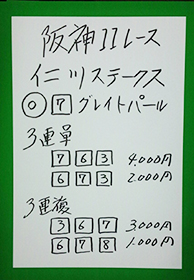 阪神11レース
仁川ステークス
◎ 7 グレイトパール
3連単
7 6 3 4,000円
6 7 3 2,000円
3連複
3 6 7 3,000円
6 7 8 1,000円